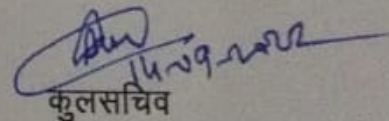 14-09-2022
कुलसचिव